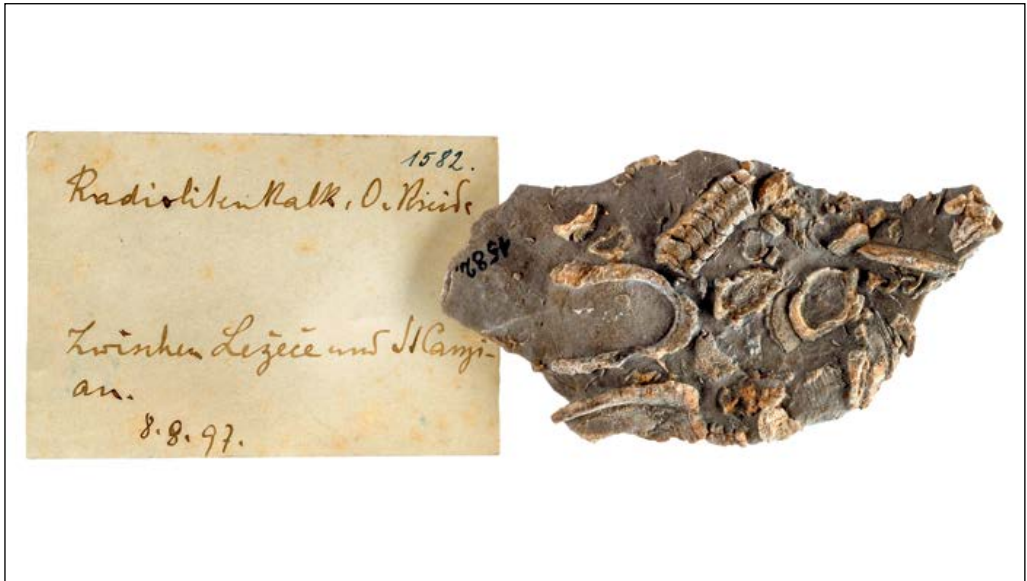 1582.
Radiolitenkalk, O. Kreide
Zwischen Ležeče und St Canzi-
an.
8.8.97.
1582.